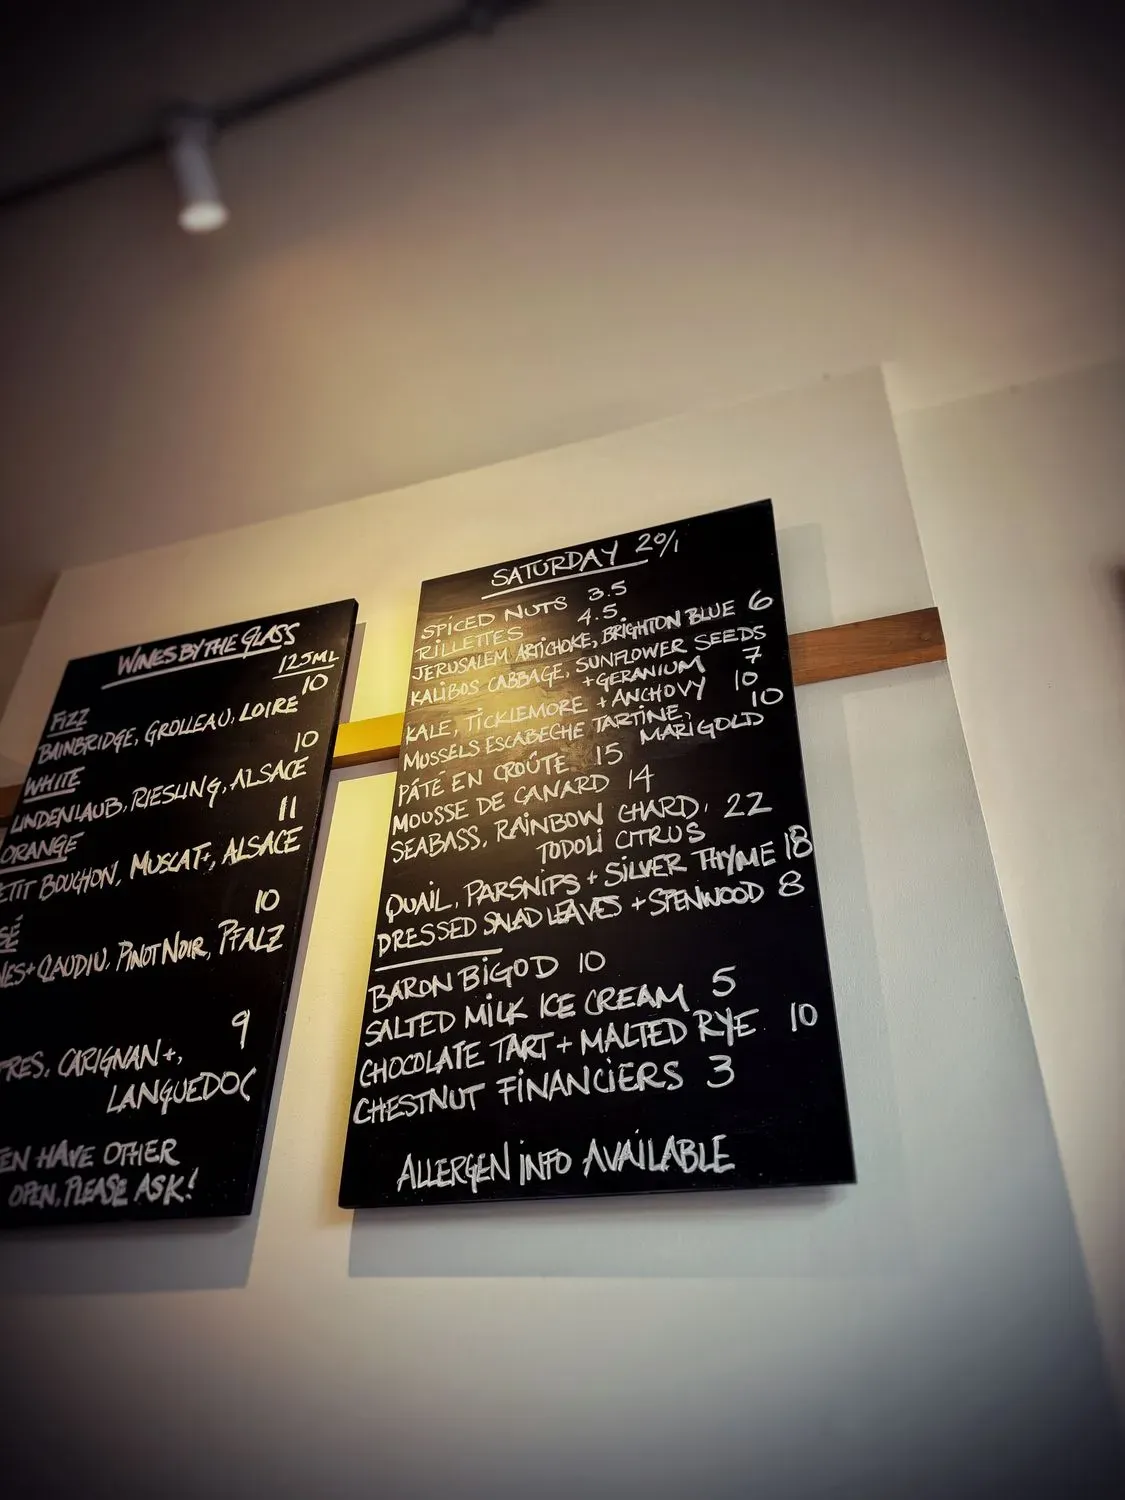 WINES BY THE GLASS
125ML
FIZZ
10
BAINBRIDGE, GROLLEAU, LOIRE
WHITE
10
LINDENLAUB, RIESLING, ALSACE
ORANGE
11
ETIT BOUCHON, MUSCAT+, ALSACE
SÉ
10
NES+CLAUDIU, PINOT NOIR, PFALZ
9
TRES, CARIGNAN+,
LANGUEDOC
EN HAVE OTHER
OPEN, PLEASE ASK!
SATURDAY 20/1
SPICED NUTS 3.5
RILLETTES 4.5
JERUSALEM ARTICHOKE, BRIGHTON BLUE 6
KALIBOS CABBAGE, SUNFLOWER SEEDS
+GERANIUM 7
KALE, TICKLEMORE + ANCHOVY 10
MUSSELS ESCABECHE TARTINE, 10
MARIGOLD
PÂTÉ EN CROÛTE 15
MOUSSE DE CANARD 14
SEABASS, RAINBOW CHARD, 22
TODOLI CITRUS
QUAIL, PARSNIPS + SILVER THYME 18
DRESSED SALAD LEAVES + SPENWOOD 8
BARON BIGOD 10
SALTED MILK ICE CREAM 5
CHOCOLATE TART + MALTED RYE 10
CHESTNUT FINANCIERS 3
ALLERGEN INFO AVAILABLE